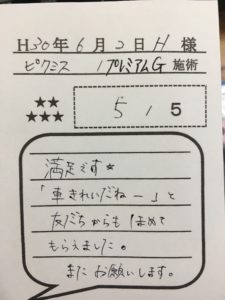 H30年6月2日H 様
ピクミス / プレミアムG 施術
★★
★★★
5 / 5
満足です★
「車きれいだねー」と
友だちからもほめて
もらえました。
またお願いします。